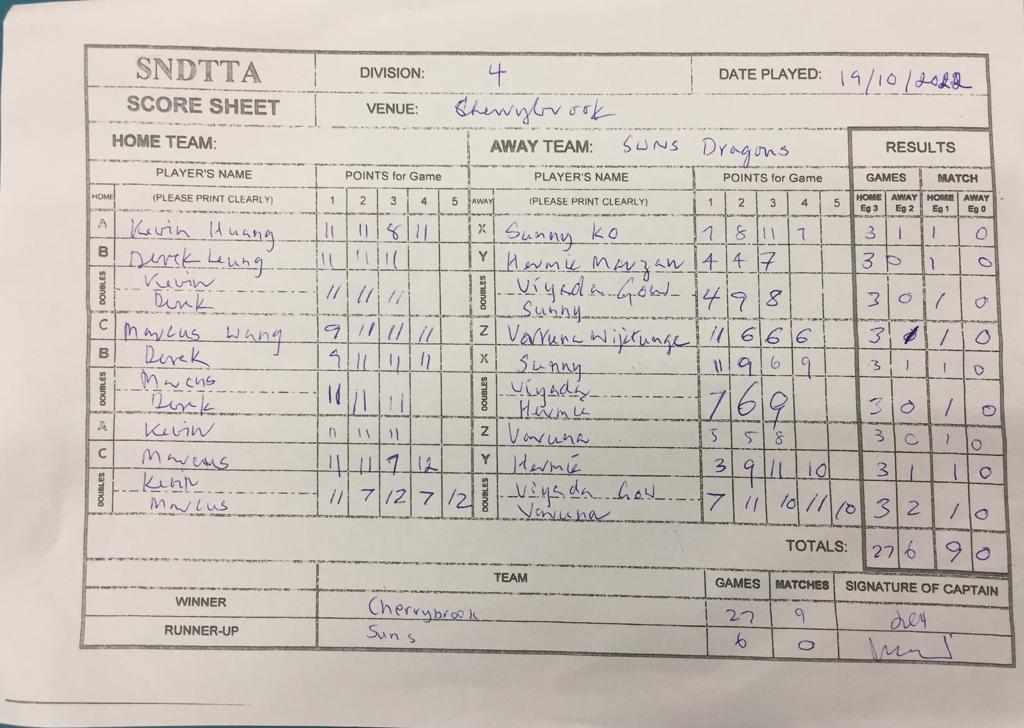 SNDTTA DIVISION: 4 DATE PLAYED: 19/10/2022
SCORE SHEET VENUE: Cherrybrook
HOME TEAM: AWAY TEAM: SUNS Dragons RESULTS
PLAYER'S NAME POINTS for Game PLAYER'S NAME POINTS for Game GAMES MATCH
HOME (PLEASE PRINT CLEARLY) 1 2 3 4 5 AWAY (PLEASE PRINT CLEARLY) 1 2 3 4 5 HOME Eg 3 AWAY Eg 2 HOME Eg 1 AWAY Eg 0
A Kevin Huang 11 11 8 11 X Sunny KO 7 8 11 7 3 1 1 0
B Derek Leung 11 11 11 Y Hermie Marzan 4 4 7 3 0 1 0
DOUBLES Kevin Derek 11 11 11 DOUBLES Viyada Gow Sunny 4 9 8 3 0 1 0
C Marcus Wang 9 11 11 11 Z Varruna Wijetunge 11 6 6 6 3 1 1 0
B Derek 9 11 11 11 X Sunny 11 9 6 9 3 1 1 0
DOUBLES Marcus Derek 11 11 11 DOUBLES Viyada Hermie 7 6 9 3 0 1 0
A Kevin 11 11 11 Z Varuna 5 5 8 3 0 1 0
C Marcus 11 11 9 12 Y Hermie 3 9 11 10 3 1 1 0
DOUBLES Kevin Marcus 11 7 12 7 12 DOUBLES Viyada Gow Varuna 7 11 10 11 10 3 2 1 0
TOTALS: 27 6 9 0
TEAM GAMES MATCHES SIGNATURE OF CAPTAIN
WINNER Cherrybrook 27 9
RUNNER-UP Suns 6 0